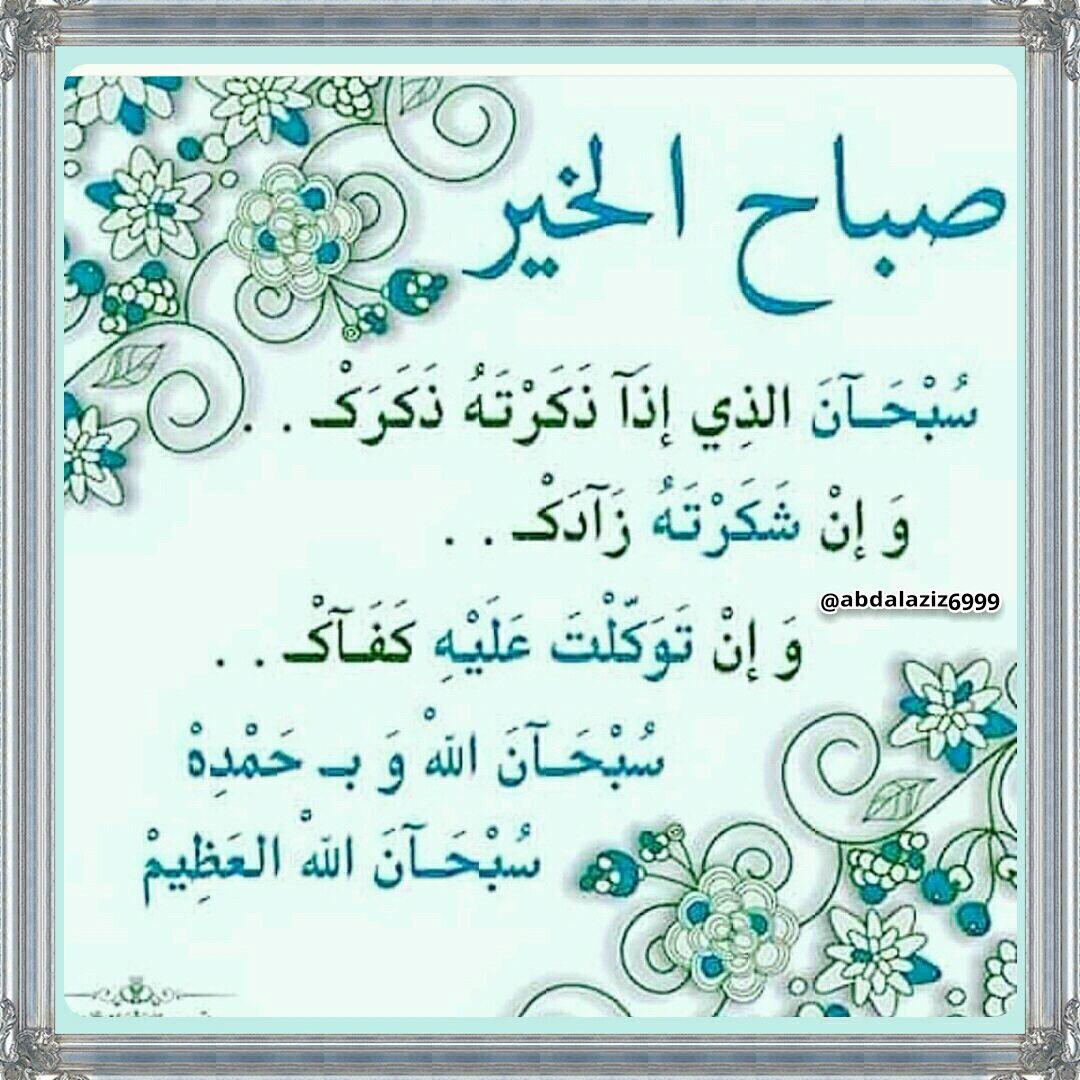 صباح الخير
سُبْحَـآنَ الذِي إِذَآ ذَكَرْتَهُ ذَكَرَكْـ . .
وَ إِنْ شَكَرْتَهُ زَآدَكْـ . .
@abdalaziz6999
وَ إِنْ تَوَكّلْتَ عَلَيْهِ كَفَـآكْـ . .
سُبْحَـآنَ اللهْ وَ بـِ حَمْدِهْ
سُبْحَـآنَ اللهْ العَظِيمْ